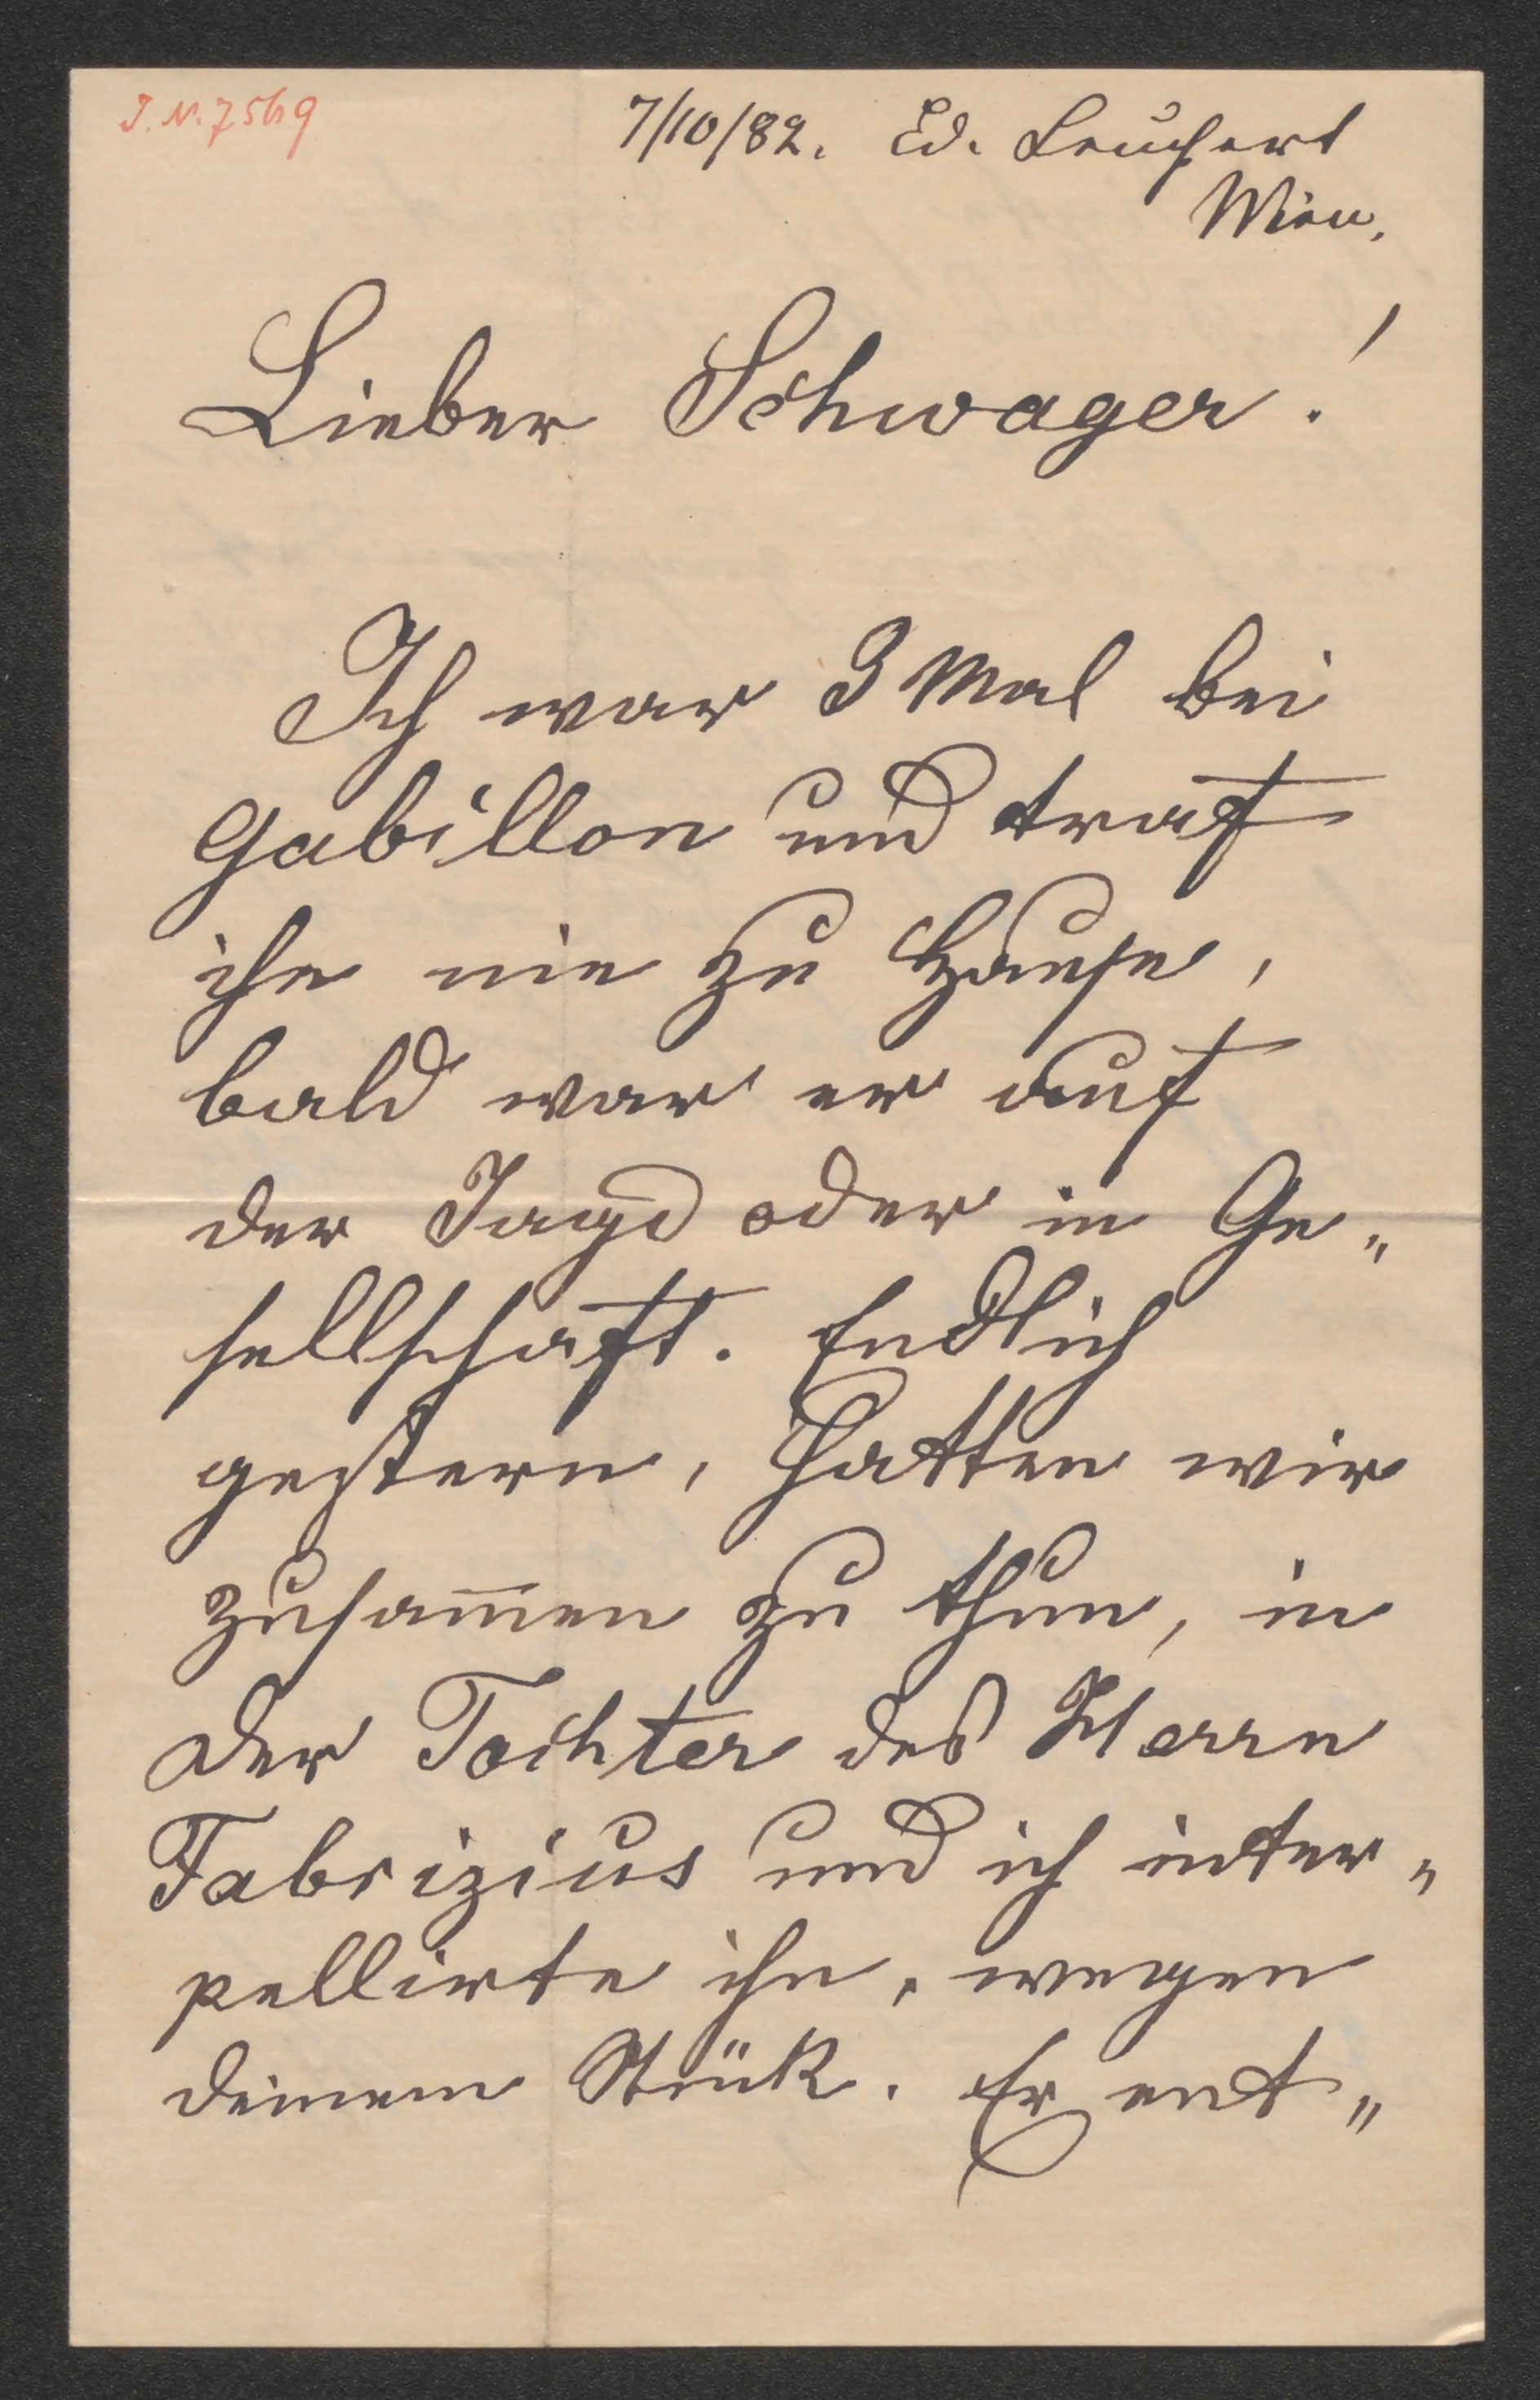 J. N. 7569
7/10/82. Ed. Leuchert
Wien.
Lieber Schwager!
Ich war 3 Mal bei
Gabillon und traf
ihn nie zu Hause,
bald war er auf
der Jagd oder in Ge„
sellschaft. Endlich
gestern, hatten wir
zusam̅en zu thun, in
der Tochter des Herrn
Fabrizius und ich inter„
pellirte ihn, wegen
deinem Stück. Er ent„